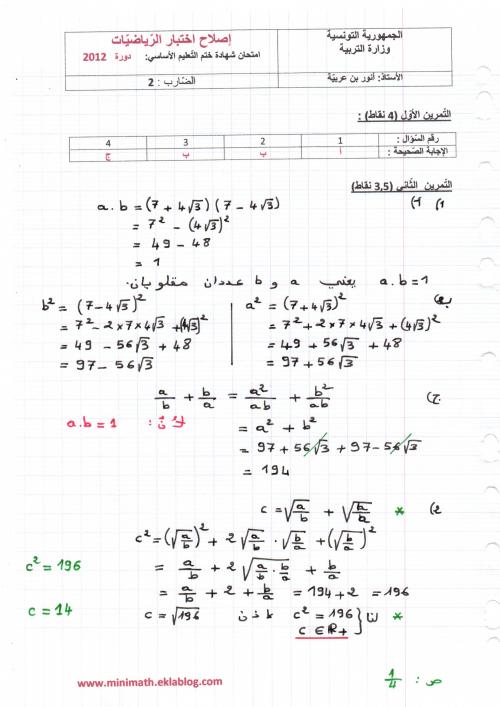 الجمهورية التونسية
وزارة التربية
إصلاح اختبار الرّياضيّات
امتحان شهادة ختم التّعليم الأساسي: دورة 2012
الأستاذ: أنور بن عربيّة
الضّارب : 2
التّمرين الأوّل (4 نقاط) :
رقم السّؤال : 1 2 3 4
الإجابة الصّحيحة : أ ب ب ج
التّمرين الثّاني (3,5 نقاط)
1) أ) a.b = (7 + 4√3) (7 - 4√3)
= 7² - (4√3)²
= 49 - 48
= 1
a.b = 1 يعني a و b عددان مقلوبان.
ب) a² = (7 + 4√3)²
= 7² + 2×7×4√3 + (4√3)²
= 49 + 56√3 + 48
= 97 + 56√3
b² = (7 - 4√3)²
= 7² - 2×7×4√3 + (4√3)²
= 49 - 56√3 + 48
= 97 - 56√3
ج) a/b + b/a = a²/ab + b²/ab
= a² + b² لأنّ : a.b = 1
= 97 + 56√3 + 97 - 56√3
= 194
2) * c = √(a/b) + √(b/a)
c² = (√(a/b))² + 2√(a/b) . √(b/a) + (√(b/a))²
= a/b + 2√(a/b . b/a) + b/a
c² = 196
= a/b + 2 + b/a = 194 + 2 = 196
* لنا c² = 196 إذن c = √196
c ∈ ℝ+
c = 14
www.minimath.eklablog.com
ص : 1/4